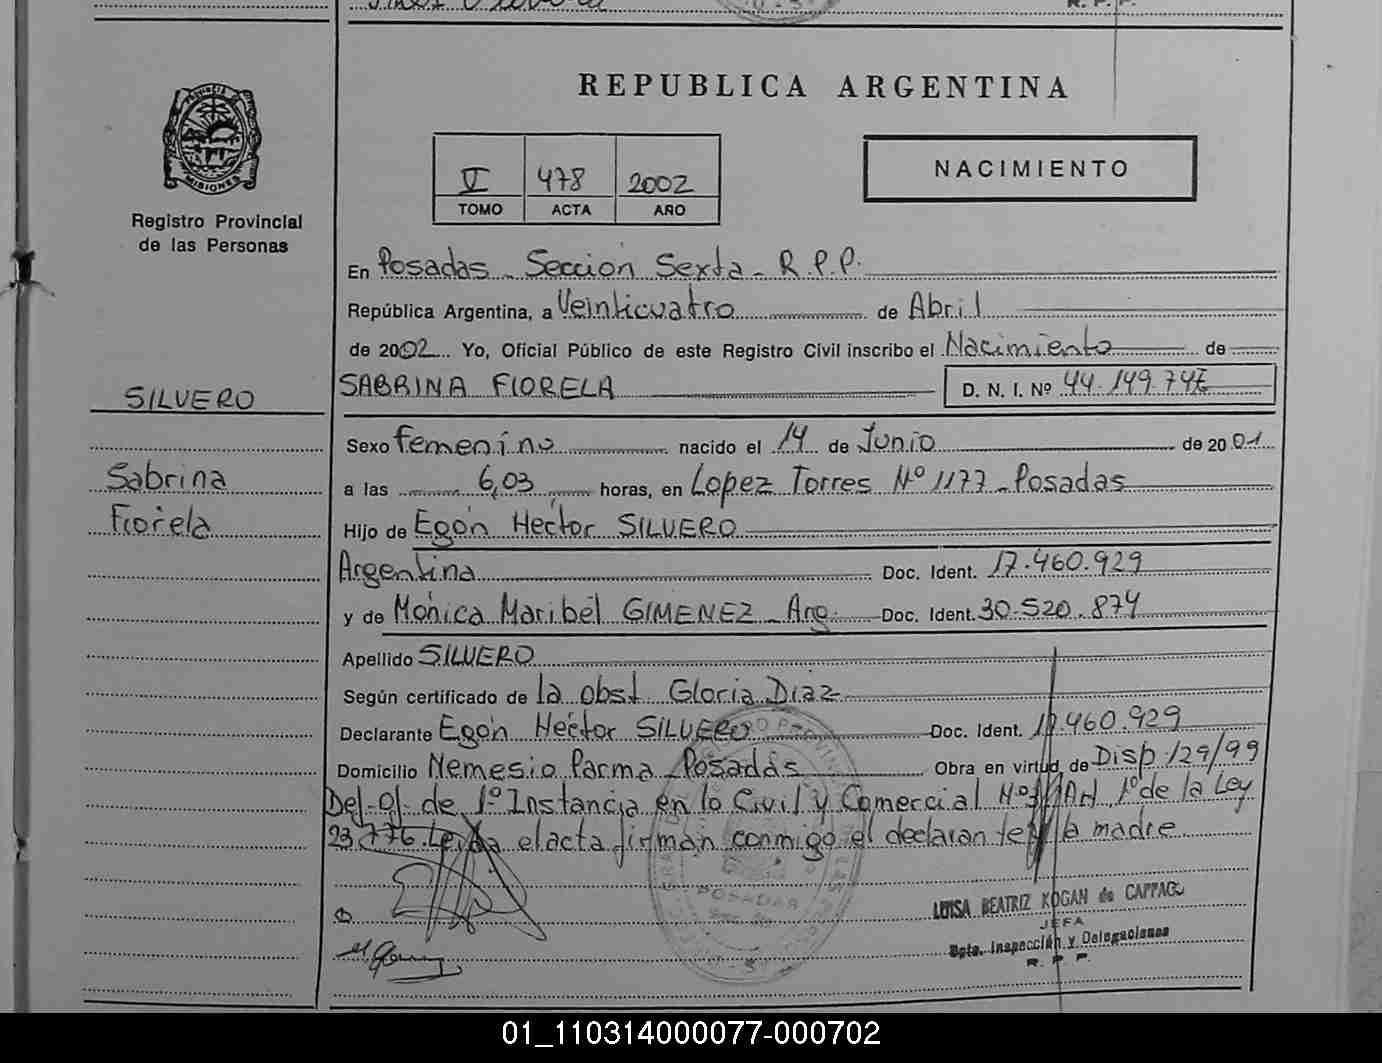 REPUBLICA ARGENTINA
PROVINCIA DE
MISIONES
Registro Provincial
de las Personas
V 478 2002
TOMO ACTA AÑO
NACIMIENTO
En Posadas - Sección Sexta - R.P.P.
República Argentina, a Veinticuatro de Abril
de 2002 Yo, Oficial Público de este Registro Civil inscribo el Nacimiento de
SABRINA FIORELA D. N. I. Nº 44.149.746
SILVERO
Sabrina
Fiorela
Sexo Femenino nacido el 14 de Junio de 2001
a las 6,03 horas, en Lopez Torres Nº 1177 - Posadas
Hijo de Egón Hector SILVERO
Argentina Doc. Ident. 17.460.929
y de Mónica Maribel GIMENEZ - Arg. Doc. Ident. 30.520.874
Apellido SILVERO
Según certificado de la obst. Gloria Diaz
Declarante Egón Hector SILVERO Doc. Ident. 17.460.929
Domicilio Nemesio Parma - Posadas Obra en virtud de Disp 129/99
Del Of. de 1º Instancia en lo Civil y Comercial Nº Art 1º de la Ley
23.776. Leída el acta firman conmigo el declarante y la madre
POSADAS
LUISA BEATRIZ KOGAN de CAPPAGO
JEFA
Dpto. Inspección y Delegaciones
R. P. P.
01_110314000077-000702